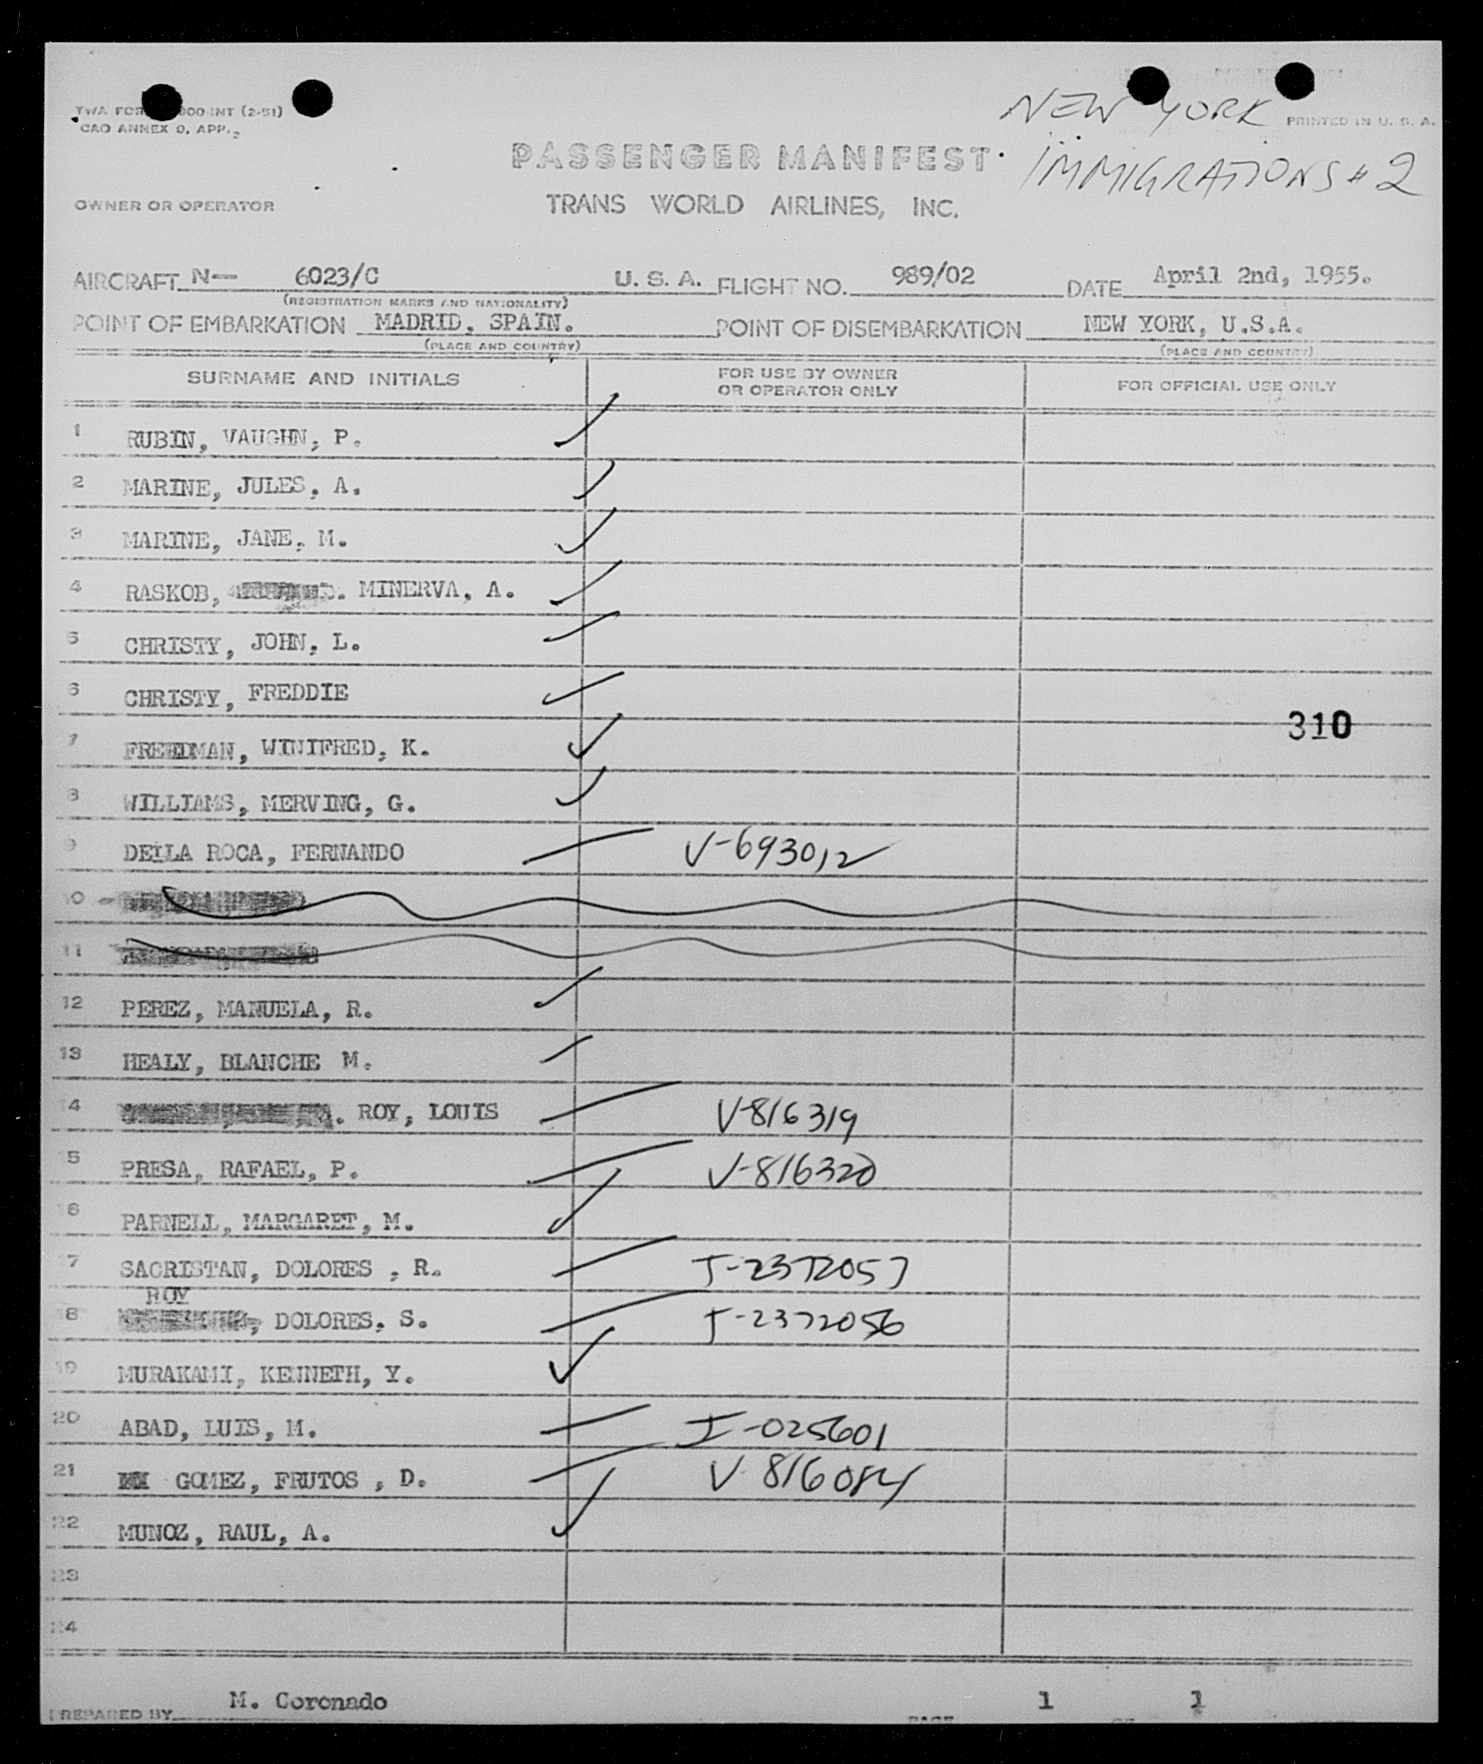 NEW YORK
TWA FORM 000 INT (2-51)
PRINTED IN U. S. A.
CAO ANNEX 9, APP.
PASSENGER MANIFEST
IMMIGRATIONS # 2
OWNER OR OPERATOR
TRANS WORLD AIRLINES, INC.
AIRCRAFT N— 6023/C U. S. A. FLIGHT NO. 989/02 DATE April 2nd, 1955.
(REGISTRATION MARKS AND NATIONALITY)
POINT OF EMBARKATION MADRID, SPAIN. POINT OF DISEMBARKATION NEW YORK, U.S.A.
(PLACE AND COUNTRY) (PLACE AND COUNTRY)
SURNAME AND INITIALS FOR USE BY OWNER OR OPERATOR ONLY FOR OFFICIAL USE ONLY
1 RUBIN, VAUGHN, P.
2 MARINE, JULES, A.
3 MARINE, JANE, M.
4 RASKOB, MINERVA, A.
5 CHRISTY, JOHN, L.
6 CHRISTY, FREDDIE
310
7 FREEDMAN, WINIFRED, K.
8 WILLIAMS, MERVING, G.
9 DELLA ROCA, FERNANDO V-693012
10
11
12 PEREZ, MANUELA, R.
13 HEALY, BLANCHE M.
14 ROY, LOUIS V-816319
15 PRESA, RAFAEL, P. V-816320
16 PARNELL, MARGARET, M.
17 SACRISTAN, DOLORES , R. I-2372057
ROY
18 DOLORES, S. I-2372056
19 MURAKAMI, KENNETH, Y.
20 ABAD, LUIS, M. I-025601
21 GOMEZ, FRUTOS , D. V-816084
22 MUNOZ, RAUL, A.
23
24
PREPARED BY M. Coronado PAGE 1 OF 1